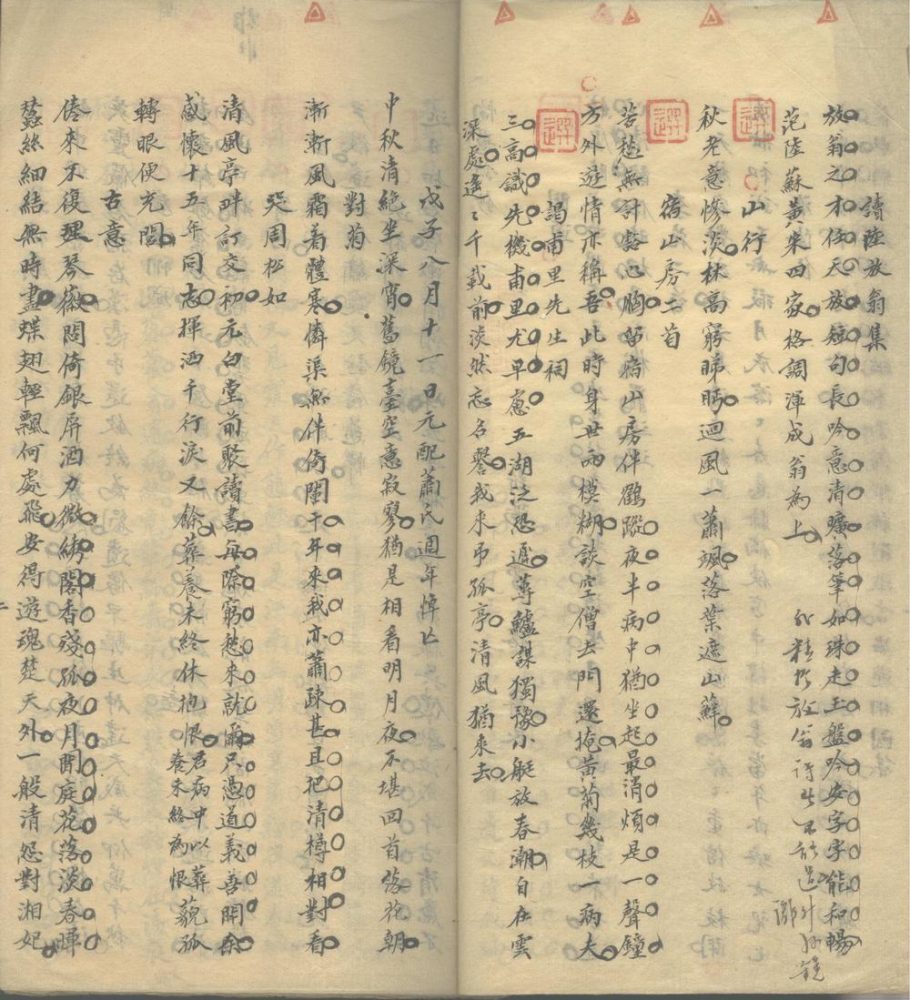 讀陸放翁集
放翁之才任天放短句長吟意清曠落筆如珠走玉盤吟安字字能和暢
范陸蘇黃宋四家格調渾成翁為上
山行
秋老意慘淡林高窮睇眄迴風一蕭颯落葉遮山蘚
宿山房二首
苦愁無計豁心胸留宿山房伴鶴蹤夜半病中猶坐起最消煩是一聲鐘
方外遊情亦稱吾此時身世兩模糊談空僧去門還掩黃菊幾枝一病夫
謁甫里先生祠
三高識先機甫里尤早慮五湖泛恐遲蓴鱸謀獨豫小艇放春潮自在雲
深處遙遙千載前淡然忘名譽我來弔孤亭清風猶來去
戊子八月十一日元配蕭氏週年悼亡
中秋清絕坐深宵舊鏡臺空意寂寥猶是相看明月夜不堪回首傍花朝
對菊
漸漸風霜着體寒憐渠無伴倚闌干年來我亦蕭疎甚且把清樽相對看
哭周松如
清風亭畔訂交初元白堂前聚讀書每際窮愁來就爾只憑道義善開余
感懷十五年同志揮洒千行淚又餘葬養未終休抱恨君病中以葬藐孤
養未終為恨
轉眼便充閭
古意
倦來不復理琴徽悶倚銀屏酒力微綉閣香殘孤夜月閒庭花落淡春暉
蠶絲細結無時盡蝶翅輕飄何處飛安得遊魂楚天外一般清怨對湘妃